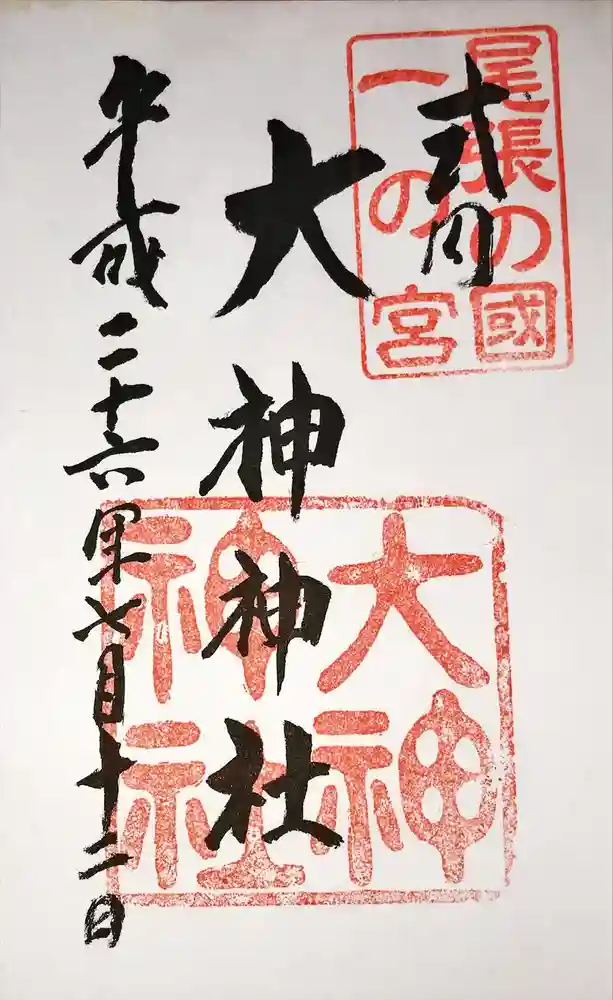 尾張の國
一の宮
式内
大神神社
大神
神社
平成二十六年七月十二日